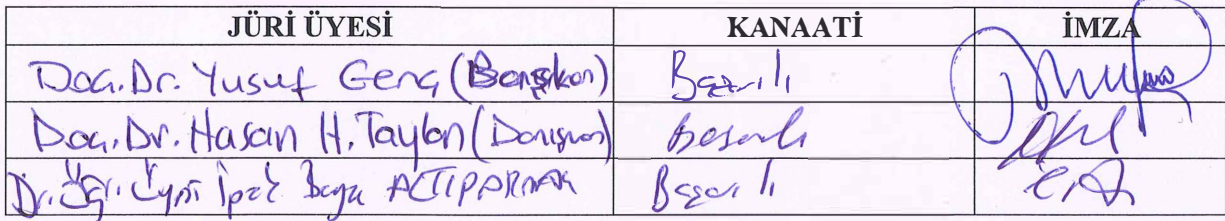 JÜRİ ÜYESİ KANAATİ İMZA
Doç.Dr. Yusuf Genç (Başkan) Başarılı
Doç.Dr. Hasan H. Taylan (Danışman) Başarılı
Dr. Öğr. Üyesi İpek Beyza ALTIPARMAK Başarılı